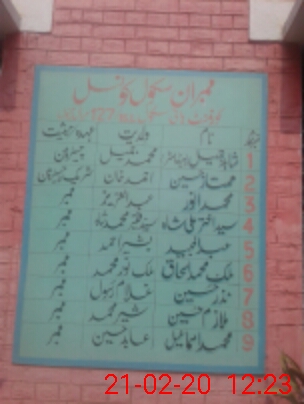 ممبران سکول کونسل
نمبر نام ولدیت عہدہ حیثیت
1 شاہد جمیل محمد جمیل چیئرمین
2 ممتاز حسین احمد خان شریک چیئرمین
3 محمد انور عبدالعزیز ممبر
4 سید اختر علی شاہ سید فتح محمد شاہ ممبر
5 عبدالمجید بشیر احمد ممبر
6 ملک محمد اسحاق ملک نور محمد ممبر
7 نذر حسین غلام رسول ممبر
8 ملازم حسین شیر محمد ممبر
9 محمد اسماعیل عابد حسین ممبر
21-02-20 12:23